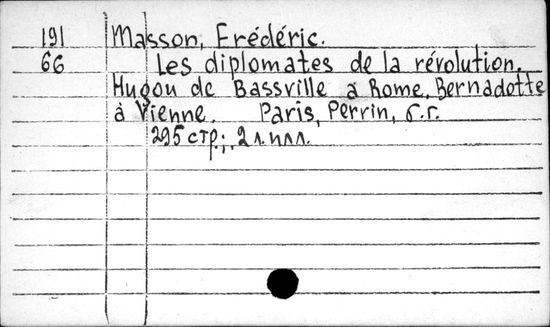 191 Masson, Frédéric.
66 Les diplomates de la révolution.
Hugou de Bassville a Rome. Bernadotte
à Vienne. Paris, Perrin, б.г.
295 стр.; 2 л. илл.